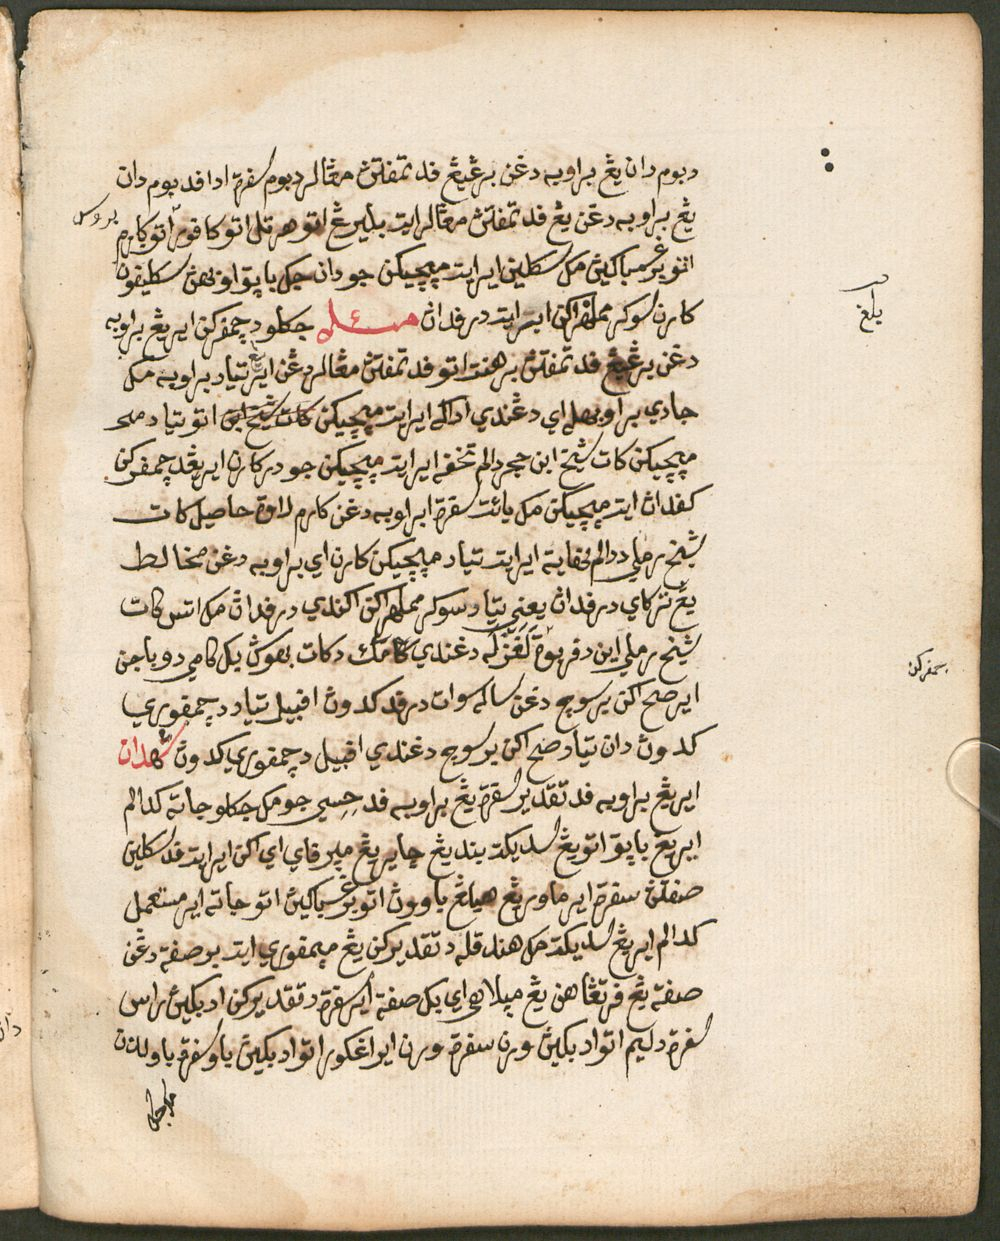 دبوم دان يڠ براوبه دڠن برڠيڠ فد تمفتڽ مڠالر دبوم سفرة ادا فد بوم دان
يڠ براوبه دڠن يڠ فد تمفتڽ مڠالر ايت بليرڠ اتو هرتل اتو كافور اتو كارم
اتو برڠسباكيڽ مك سكلين اير ايت مپچيكن جو دان جك باپق اوبهن سكليفون
كارن سوكر مملهراكن اير ايت درفدان مسئله جكلو دچمفركن اير يڠ براوبه
دڠن برڠيڠ فد تمفتڽ برهنت اتو فد تمفتڽ مڠالر دڠن اير يڠ تياد براوبه مك
جادي براوبهله اي دڠندي اداكه اير ايت مپچيكن اتو تياد
مپچيكن كات شيخ ابن حجر دالم تحفه اير ايت مپچيكن جو در كارن اير يڠد چمفركن
كفدان ايت مپچيكن مك يائت سفرة اير اوبه دڠن كارم لاوة حاصيل كات
شيخ رملي ددالم نهايه اير ايت تياد مپچيكن كارن اي براوبه دڠن مخالط
يڠ تركاي درفدان يعني تياد سوكر مملهراكن اكندي درفدان مك اتس كات
شيخ رملي اين دفربوة لغز دڠندي دكات بهوڽ بك كامي دو باجن
اير صح اكن برسوچ دڠن ساله سوات درفد كدون افبيل تياد دچمفوري
كدون دان تياد صح اكن برسوچ دڠندي افبيل دچمفوري كدون كهدان
اير يڠ براوبه فد تقدير سفرة يڠ براوبه فد حسي جو مك جكلو جاته كدالم
اير يڠ باپق اتو يڠ سديكت بند يڠ چاير يڠ مپرفاي اي اكن اير ايت فد سكلين
صفتڽ سفرة اير ماور يڠ هيلڠ باوون اتو برڠسباكيڽ اتو جاته اير مستعمل
كدالم اير يڠ سديكت مك هندقله دتقديركن يڠ مپمفوري ايت برصفة دڠن
صفة يڠ فرتڠاهن يڠ مپلاهي اي بك صفة اير سفرة دتقديركن اد بكيڽ راس
سفرة دليم اتو اد بكيڽ ورن سفرة ورن اير اڠكور اتو اد بكيڽ باو سفرة باو لادن
مك جك
يلڠ
چمفركن